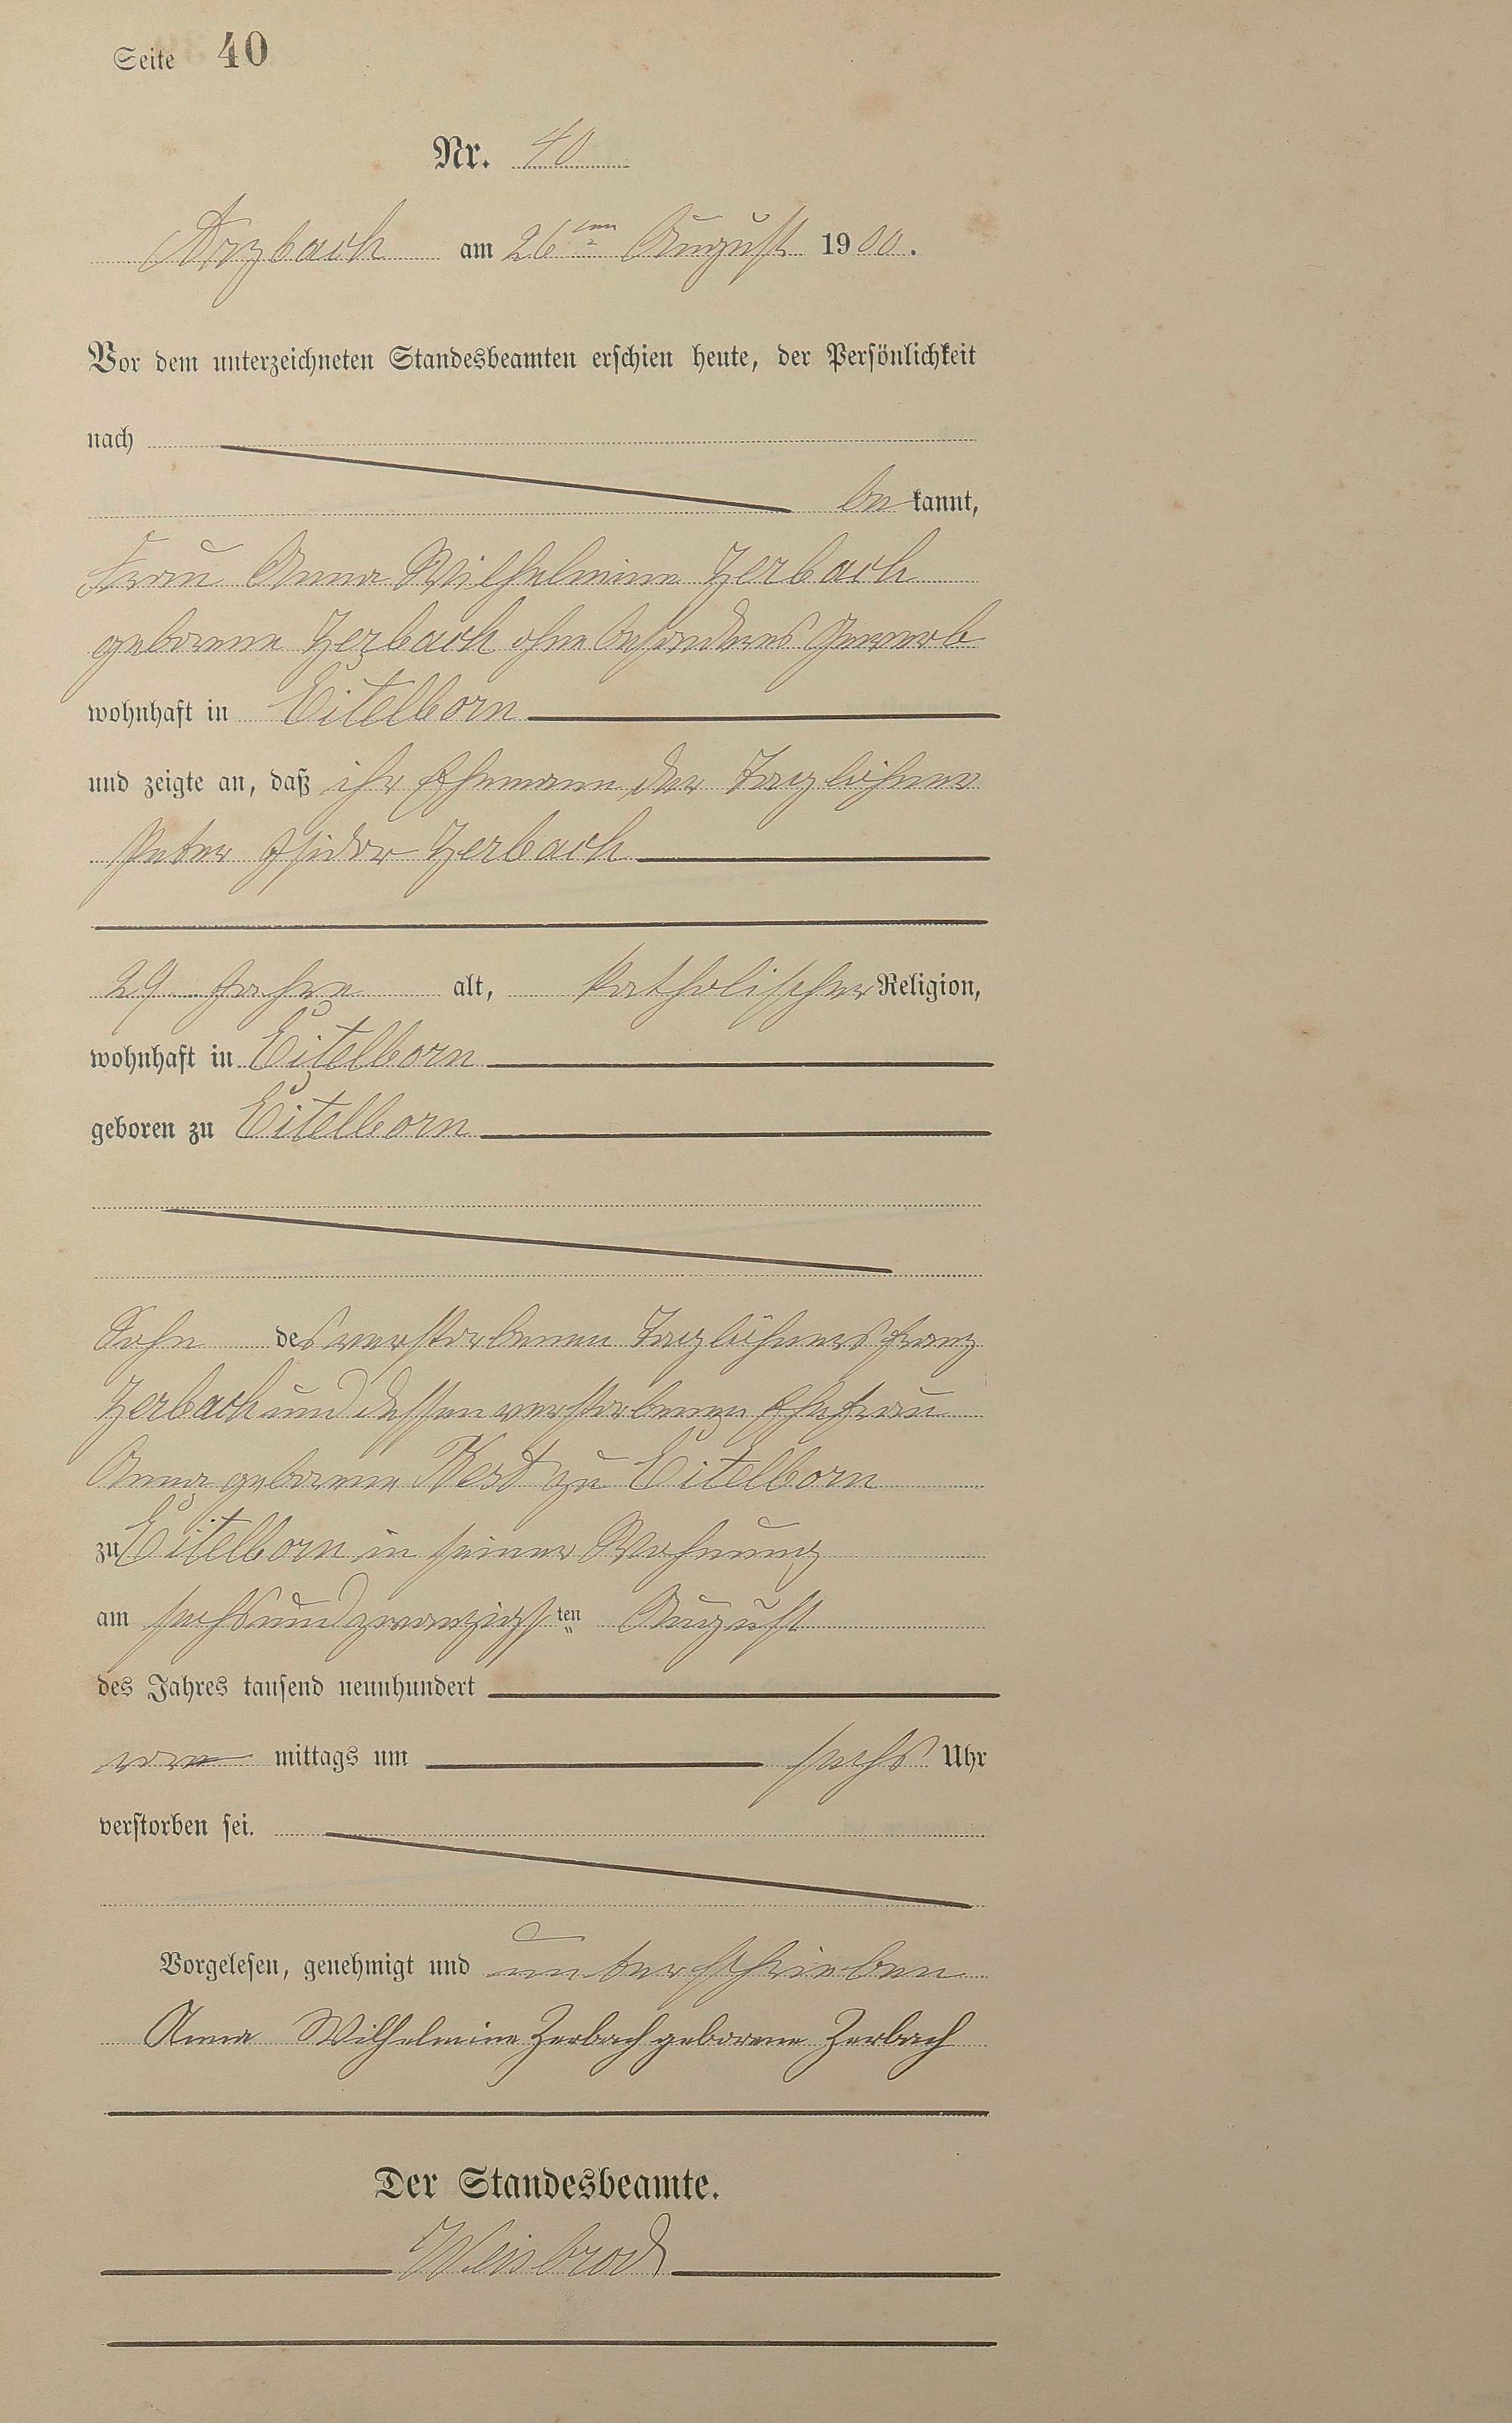 Seite 40
Nr. 40
Arzbach am 26ten August 1900.
Vor dem unterzeichneten Standesbeamten erschien heute, der Persönlichkeit
nach
be kannt,
Frau Anna Wilhelmine Zerbach
geborene Zerbach ohne besonderes Gewerb
wohnhaft in Eitelborn
und zeigte an, daß ihr Ehemann, der Taglöhner
Peter Isidor Zerbach
29 Jahre alt, katholischer Religion,
wohnhaft in Eitelborn
geboren zu Eitelborn
Sohn des verstorbenen Taglöhners Franz
Zerbach und dessen verstorbenen Ehefrau
Anna geborene zu Eitelborn
zu Eitelborn in seiner Wohnung
am sechsundzwanzigsten August
des Jahres tausend neunhundert
vor mittags um sechs Uhr
verstorben sei.
Vorgelesen, genehmigt und unterschrieben
Anna Wilhelmine Zerbach geborene Zerbach
Der Standesbeamte.
Weisbrod